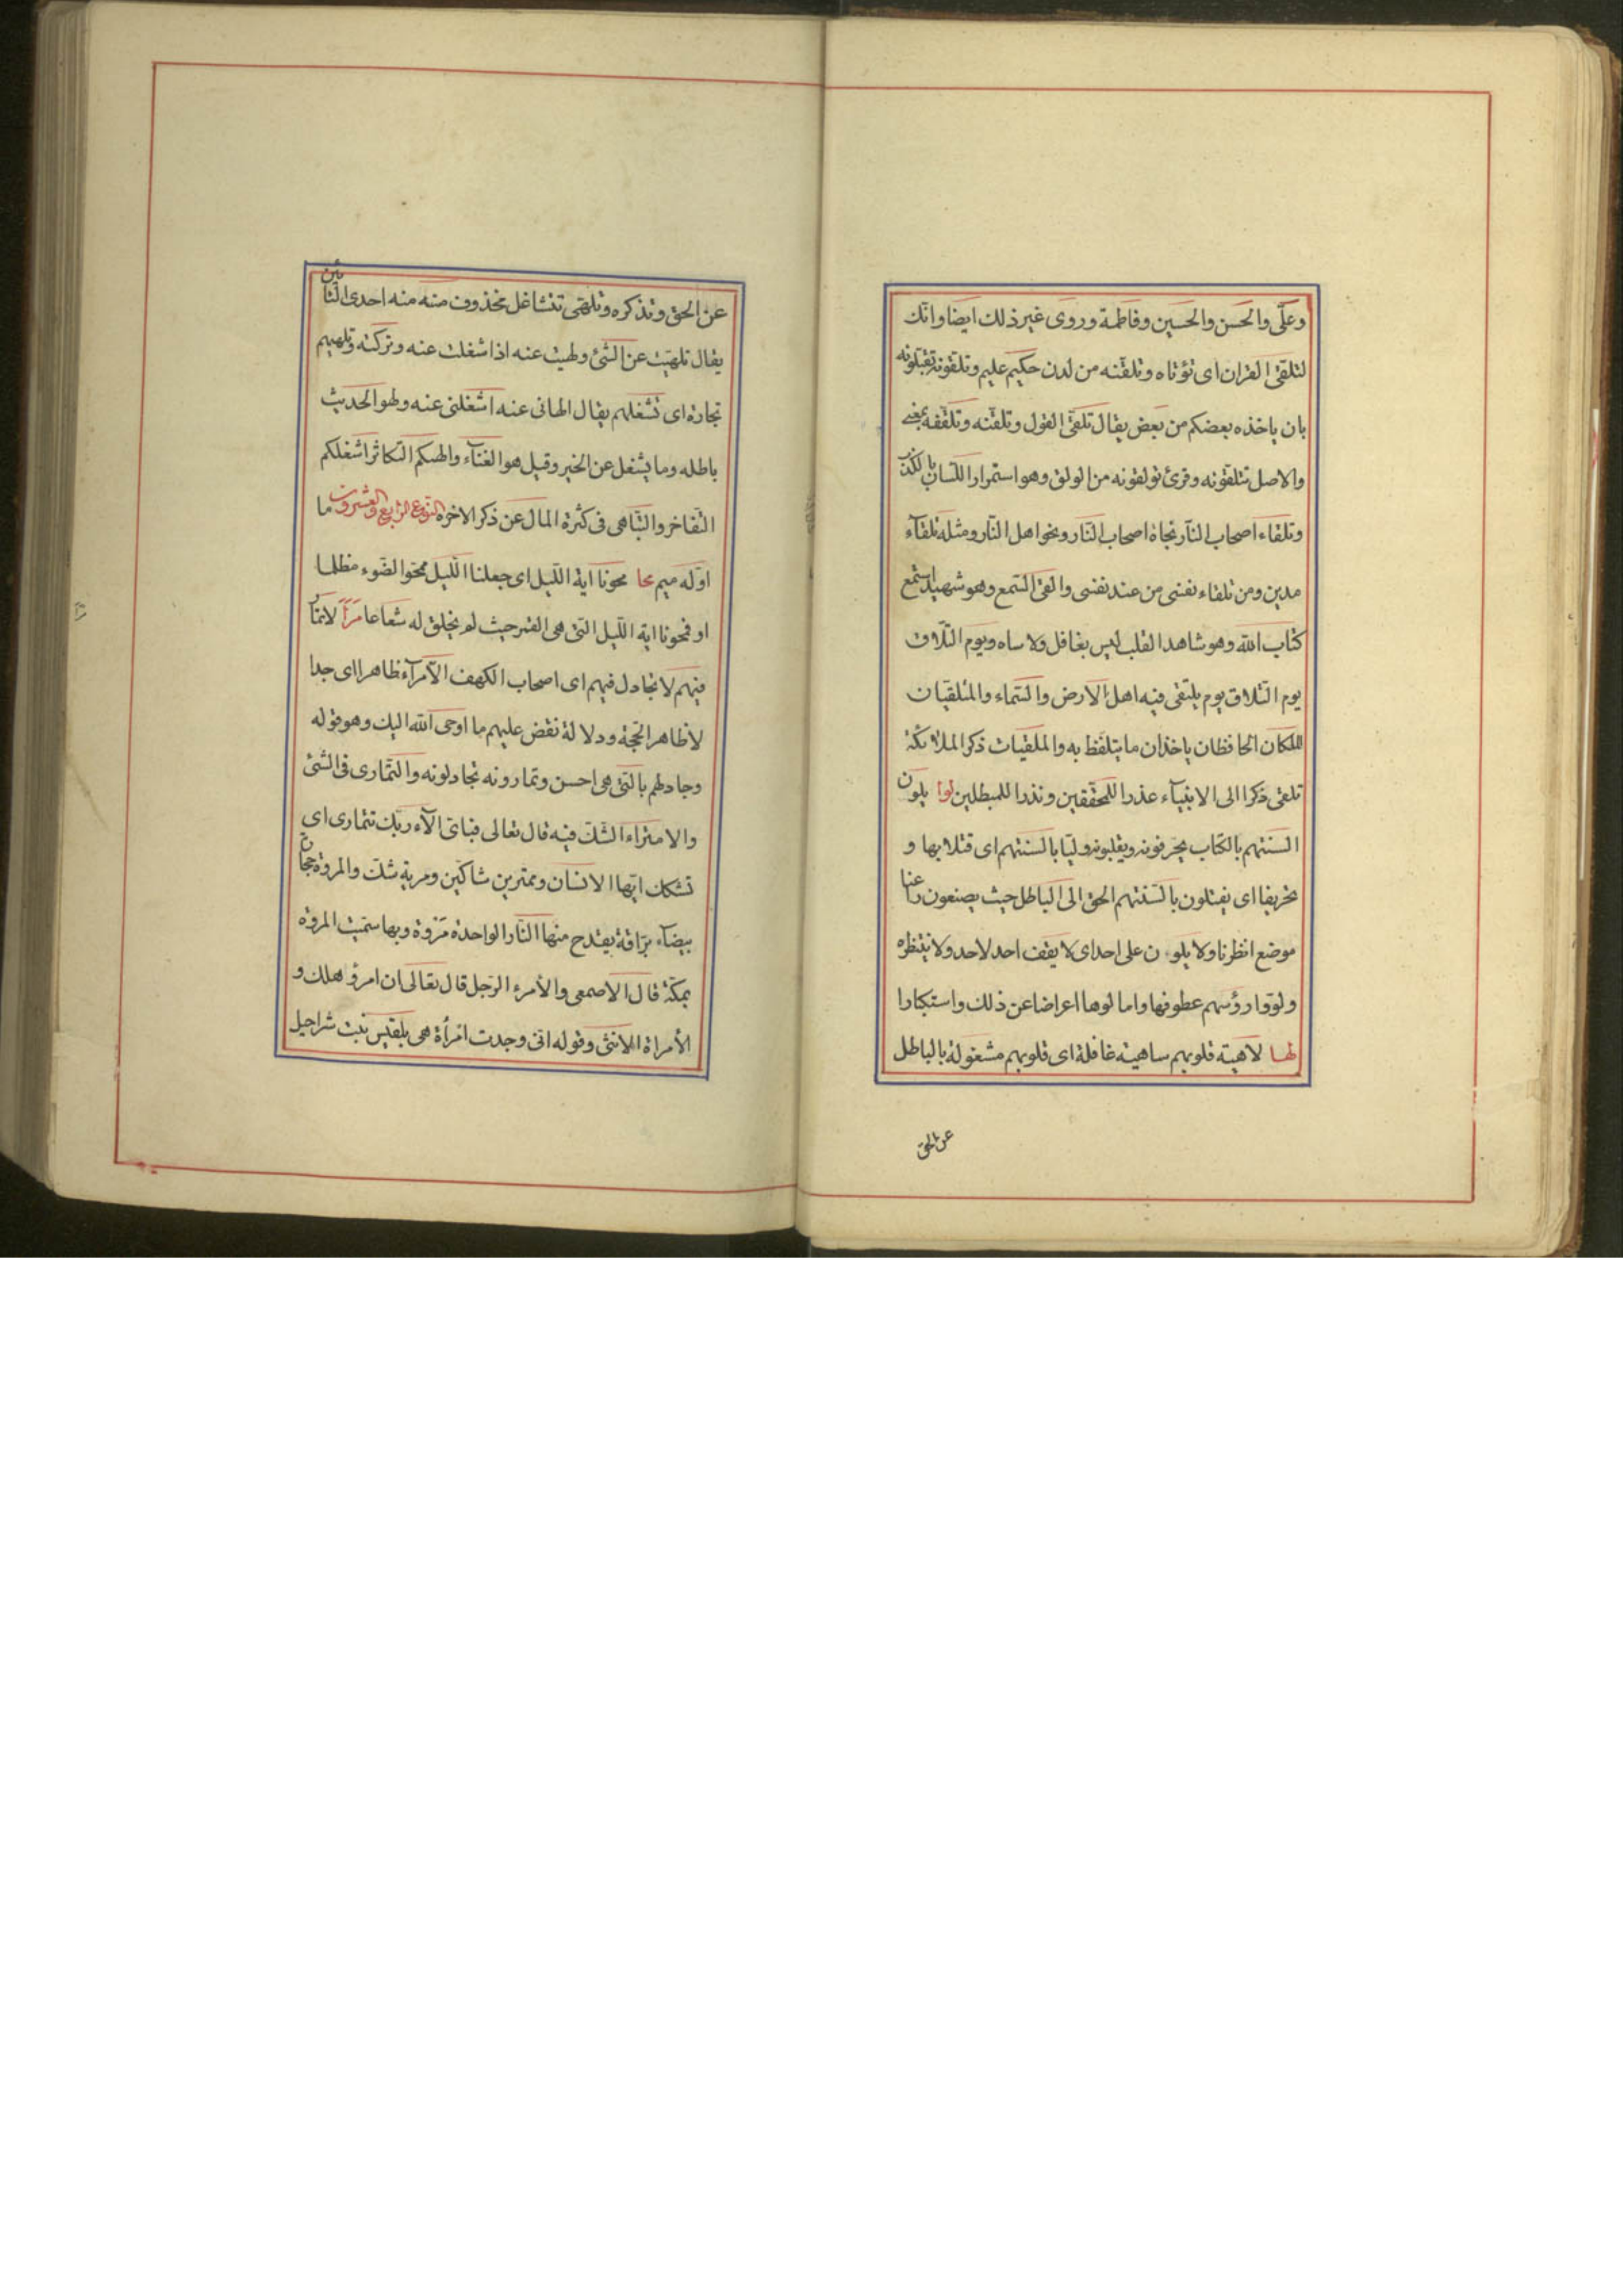 وعلّى والحسن والحسين وفاطمة وروى غير ذلك ايضا وانّك
لتلقى القران اى تؤتاه وتلقنه من لدن حكيم عليم وتلقونه تقبلونه
بان ياخذه بعضكم من بعض يقال تلقى القول وتلقنه وتلقفه بمعنى
والاصل تتلقونه وقرئ تولقونه من الولق وهو استمرار اللسان بالكذب
وتلقاء اصحاب النار تجاة اصحاب النار ونحو اهل النار ومثله تلقاء
مدين ومن تلقاء نفسى من عند نفسى والقى السمع وهو شهيد استمع
كتاب الله وهو شاهد القلب ليس بغافل ولا ساه ويوم التلاق
يوم التلاق يوم يلتقى فيه اهل الارض والسماء والمتلقيان
الملكان الحافظان ياخذان ما يتلفظ به والملقيات ذكرا الملائكة
تلقى ذكرا الى الانبياء عذرا للمحققين ونذرا للمبطلين لوا يلون
السنتهم بالكتاب يحرفونه ويقلبونه وليّا بالسنتهم اى فتلا بها و
تحريفا اى يفتلون بالسنتهم الحق الى الباطل حيث يصنعون راعنا
موضع انظرنا ولا يلون على احد اى لا يقف احد لاحد ولا ينتظره
ولووا رؤسهم عطوفها وامالوها اعراضا عن ذلك واستكبارا
لها لاهية قلوبهم ساهية غافلة اى قلوبهم مشغولة بالباطل
عن الحق
عن الحق وتذكره وتلهى تتشاغل محذوف منه منه احدى التائين
يقال تلهيت عن الشئ ولهيت عنه اذا شغلت عنه وتركته وتلهيهم
تجارة اى تشغلهم يقال الهانى عنه اشغلنى عنه ولهو الحديث
باطله وما يشغل عن الخير وقيل هو الغناء والهيكم التكاثر اشغلكم
التفاخر والتباهى فى كثرة المال عن ذكر الاخرة النوع الرابع والعشرون ما
اوّله ميم محا محونا اية الليل اى جعلنا الليل محوا لضوء مظلما
او فمحونا اية الليل التى هى القمر حيث لم يخلق له شعاعا مراَ لا تمار
فيهم لا تجادل فيهم اى اصحاب الكهف الا مراء ظاهرا اى جدا
لا ظاهر الحجة ودلالة نقض عليهم ما اوحى الله اليك وهو قوله
وجادلهم بالتى هى احسن وتمارونه تجادلونه والتمارى فى الشئ
والامتراء الشك فيه قال تعالى فباى الاء ربك تتمارى اى
تشكك ايها الانسان وممترين شاكين ومرية شك والمروة حجارة
بيضاء براقة يقتدح منها النار الواحدة مروة وبها سميت المروة
بمكة قال الاصمعى والأمرء الرجل قال تعالى ان امرؤ هلك و
الأمراة الانثى وقوله انى وجدت امرأة هى بلقيس بنت شراحيل